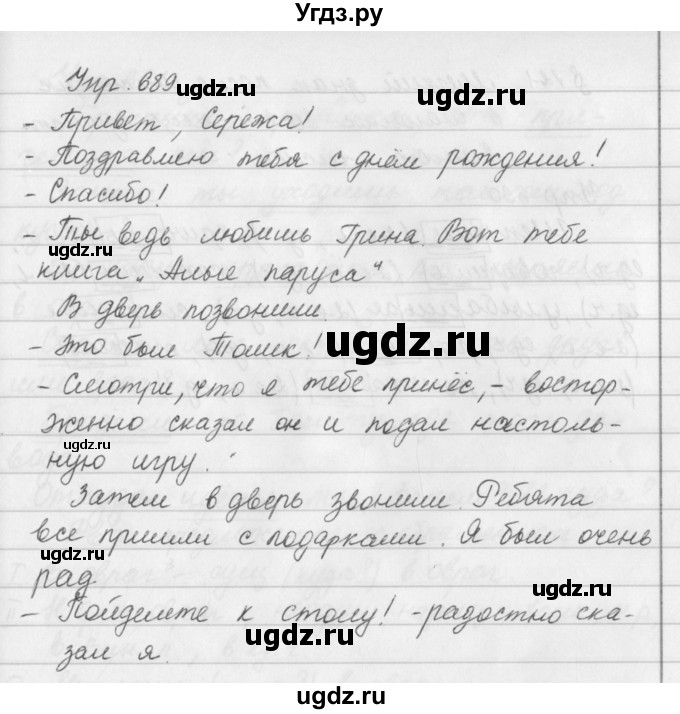 Угдз.ру
Упр. 689 ugdz.ru ugdz.ru
- Привет, Сережа!
- Поздравляю тебя с днём рождения!
- Спасибо!
- Ты ведь любишь Грина. Вот тебе
ugdz.ru
книга „Алые паруса"
В дверь позвонили
- Это был Толик! ugdz.ru
- Смотри, что я тебе принёс, - востор-
женно сказал он и подал настоль-
ugdz.ru
ную игру.
Затем в дверь звонили. Ребята
все пришли с подарками. Я был очень
ugdz.ru
рад
ugdz.ru
- Пойдемте к столу! - радостно ска-
ugdz.ru
зал я.
ugdz.ru
ugdz.ru